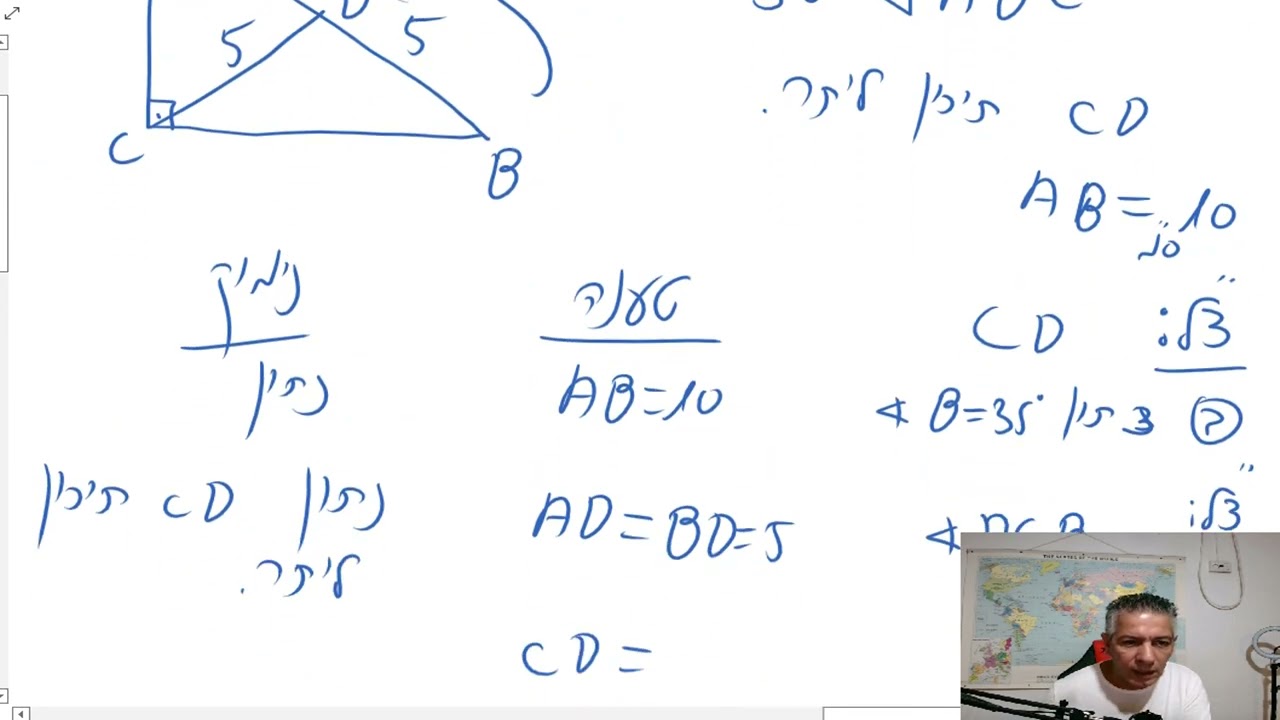 5 5
C
B
CD תיכון ליתר.
AB = 10 ס"מ
צ"ל: CD
ב נתון ∢B=35°
צ"ל:
טענה נימוק
AB=10 נתון
AD=BD=5 נתון CD תיכון
ליתר.
CD=